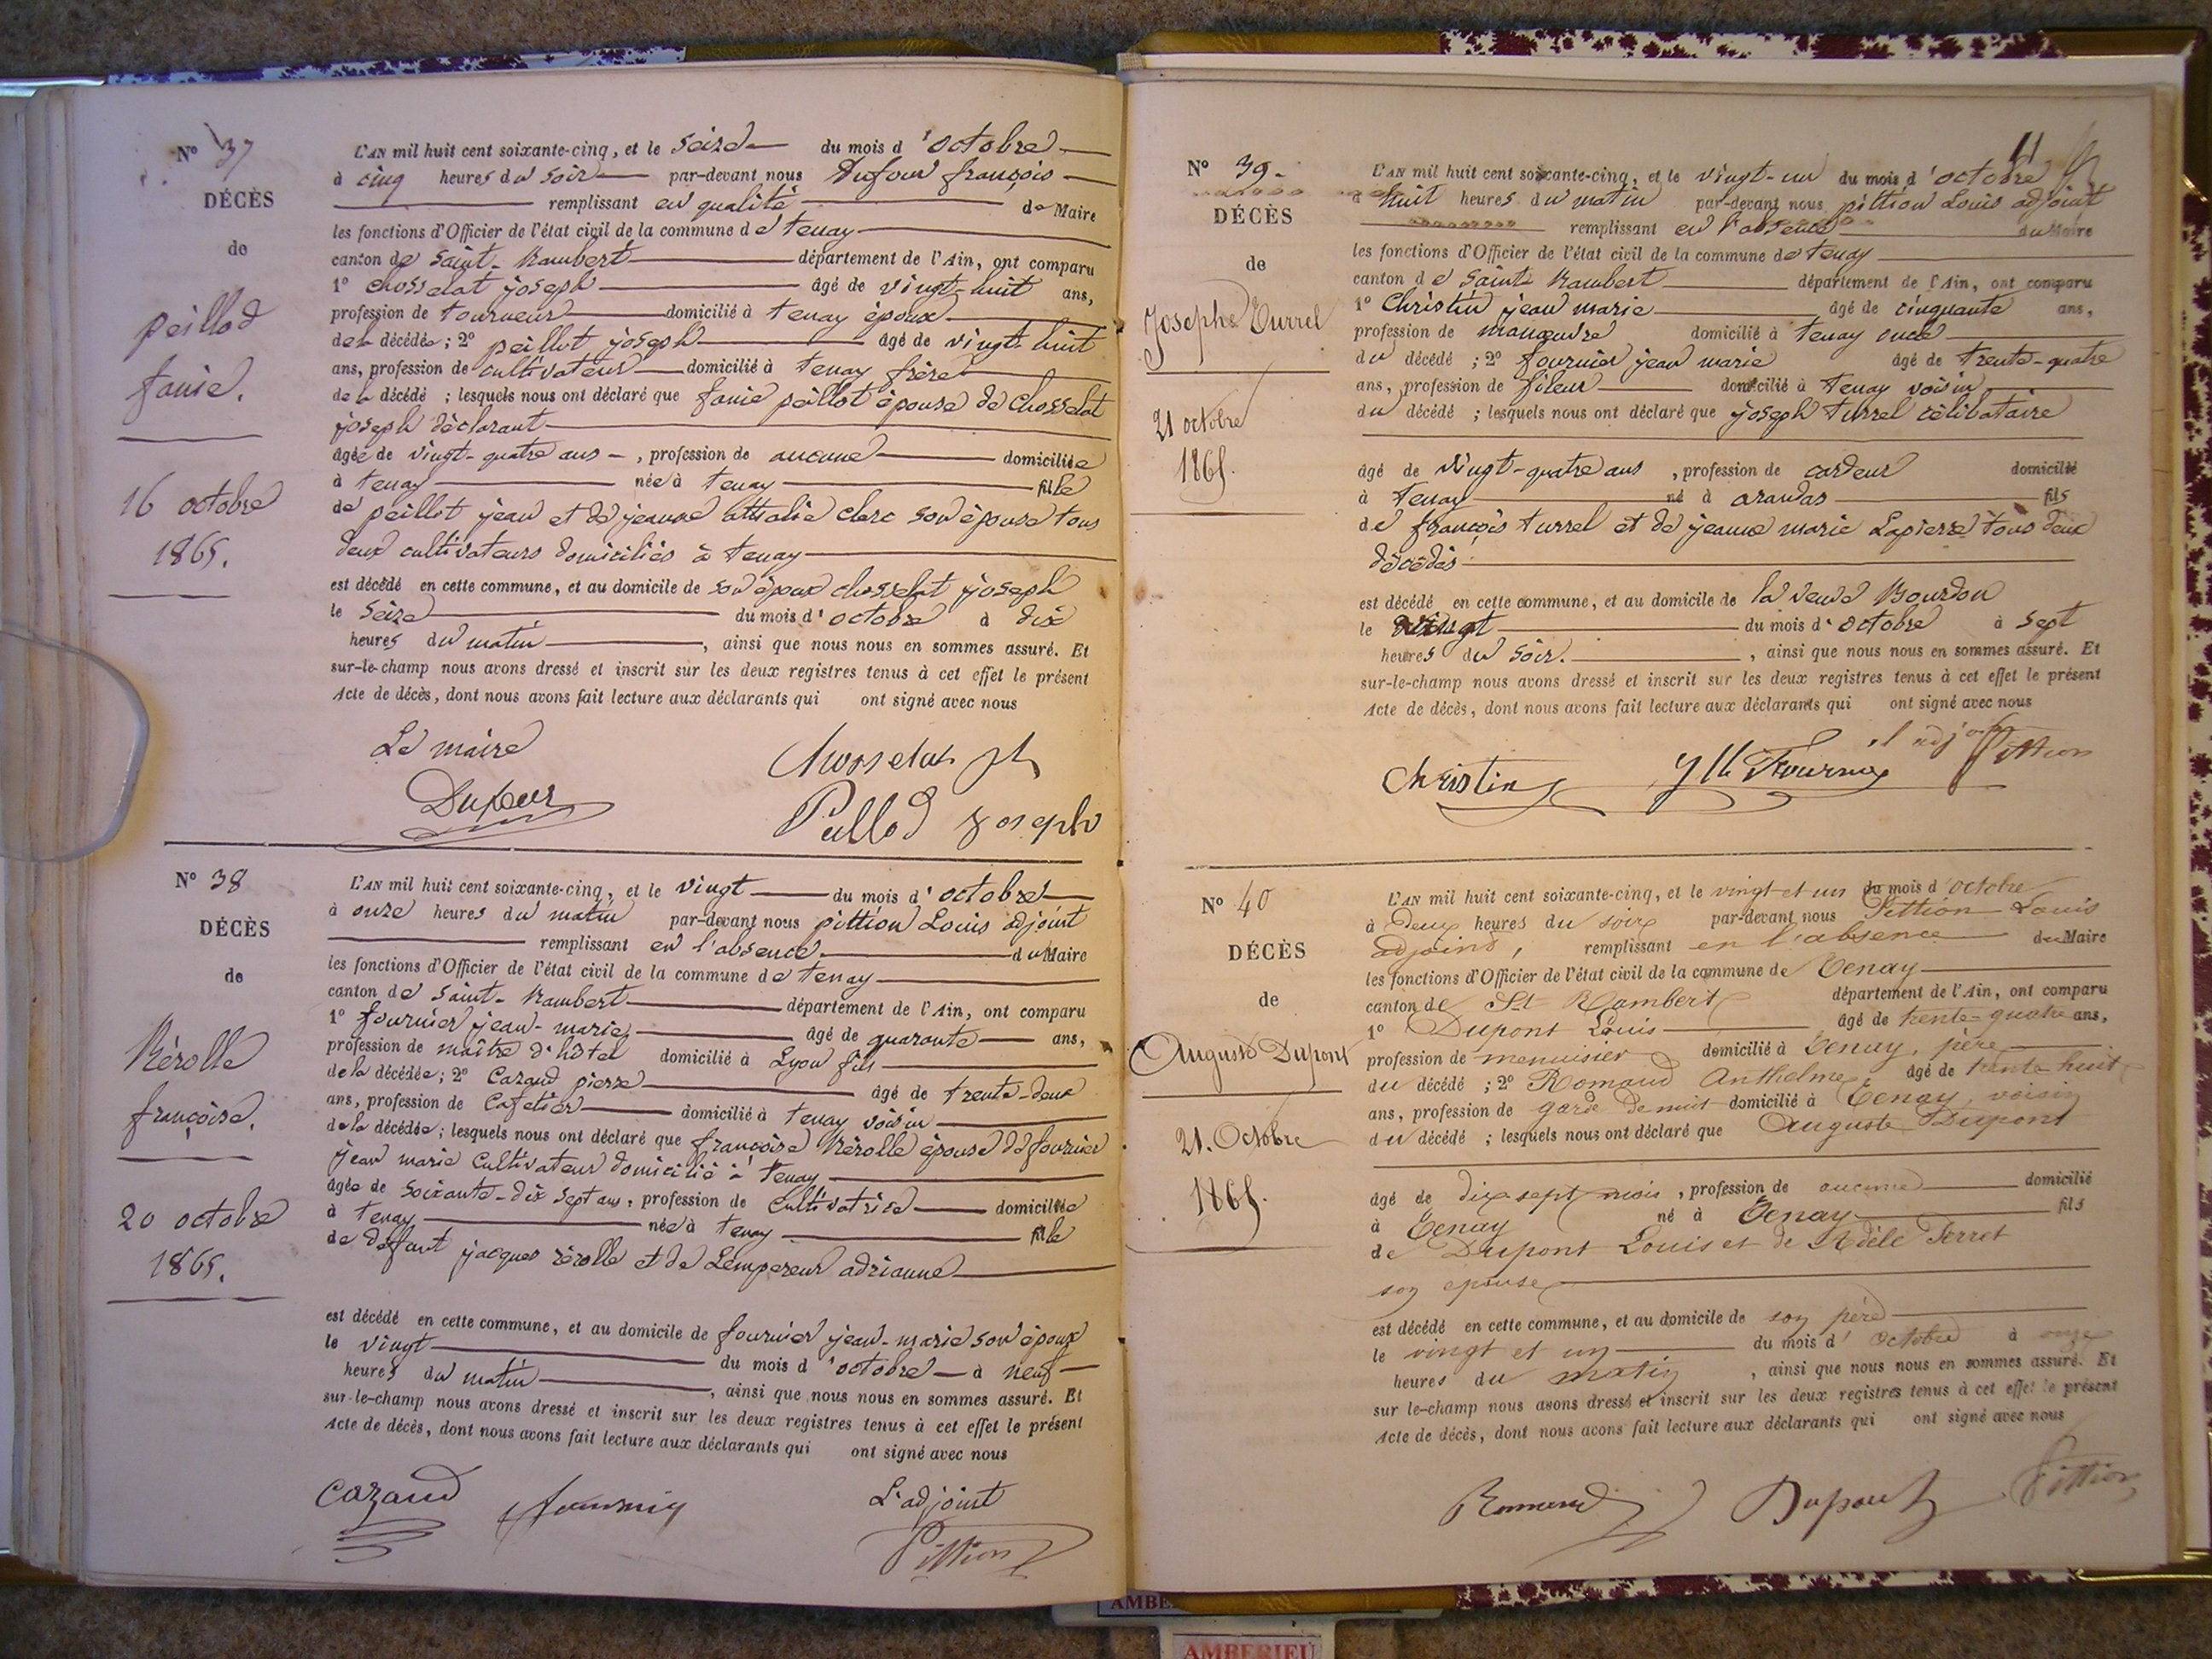 N° 37
DÉCÈS
de
peillod
fanie.
16 octobre
1865.
L'AN mil huit cent soixante-cinq, et le seize du mois d'octobre
à cinq heures du soir par-devant nous Dufour françois
remplissant en qualité de Maire
les fonctions d'Officier de l'état civil de la commune de tenay
canton de Saint-Rambert département de l'Ain, ont comparu
1° chosselat joseph âgé de vingt-huit ans,
profession de tourneur domicilié à tenay époux
de la décédée; 2° peillot joseph âgé de vingt huit
ans, profession de cultivateur domicilié à tenay frère
de la décédé ; lesquels nous ont déclaré que fanie peillot épouse de Chosselat
joseph déclarant
âgée de vingt-quatre ans, profession de aucune domiciliée
à tenay née à tenay fille
de peillot jean et de jeanne atthalie clerc son épouse tous
deux cultivateurs domiciliés à tenay
est décédé en cette commune, et au domicile de son époux chosselat joseph
le seize du mois d'octobre à dix
heures du matin, ainsi que nous nous en sommes assuré. Et
sur-le-champ nous avons dressé et inscrit sur les deux registres tenus à cet effet le présent
Acte de décès, dont nous avons fait lecture aux déclarants qui ont signé avec nous
Le maire
Chosselat Jh
Dufour
Peillod Joseph
N° 38
DÉCÈS
de
Rérolle
françoise.
20 octobre
1865.
L'AN mil huit cent soixante-cinq, et le vingt du mois d'octobre
à onze heures du matin par-devant nous pittion Louis adjoint
remplissant en l'absence du Maire
les fonctions d'Officier de l'état civil de la commune de tenay
canton de Saint-Rambert département de l'Ain, ont comparu
1° fournier jean-marie âgé de quarante ans,
profession de maître d'hôtel domicilié à Lyon fils
de la décédée; 2° Cazaud pierre âgé de trente-deux
ans, profession de Cafetier domicilié à tenay voisin
de la décédée; lesquels nous ont déclaré que françoise Rérolle épouse de fournier
jean marie Cultivateur domicilié à tenay
âgée de soixante-dix sept ans, profession de Cultivatrice domiciliée
à tenay née à tenay fille
de deffunt jacques rérolle et de Lempereur adrianne
est décédé en cette commune, et au domicile de fournier jean-marie son époux
le vingt du mois d'octobre à neuf
heures du matin, ainsi que nous nous en sommes assuré. Et
sur-le-champ nous avons dressé et inscrit sur les deux registres tenus à cet effet le présent
Acte de décès, dont nous avons fait lecture aux déclarants qui ont signé avec nous
Cazaud fournier L'adjoint
Pittion
11
N° 39.
DÉCÈS
de
Joseph Turrel
21 octobre
1865.
L'AN mil huit cent soixante-cinq, et le vingt-un du mois d'octobre
à huit heures du matin par-devant nous pittion Louis adjoint
remplissant en l'absence du Maire
les fonctions d'Officier de l'état civil de la commune de tenay
canton de Saint Rambert département de l'Ain, ont comparu
1° Christin jean marie âgé de cinquante ans,
profession de manœuvre domicilié à tenay oncle
du décédé ; 2° fournier jean marie âgé de trente-quatre
ans, profession de fileur domicilié à tenay voisin
du décédé ; lesquels nous ont déclaré que joseph turrel célibataire
âgé de vingt-quatre ans, profession de cardeur domicilié
à tenay né à arandas fils
de françois turrel et de jeanne marie Lapierre tous deux
décédés
est décédé en cette commune, et au domicile de la veuve Bourdon
le vingt du mois d'octobre à sept
heures du soir., ainsi que nous nous en sommes assuré. Et
sur-le-champ nous avons dressé et inscrit sur les deux registres tenus à cet effet le présent
Acte de décès, dont nous avons fait lecture aux déclarants qui ont signé avec nous
l'adjoint
Christin Fournier Pittion
N° 40
DÉCÈS
de
Auguste Dupont
21. Octobre
1865.
L'AN mil huit cent soixante-cinq, et le vingt et un du mois d'octobre
à Deux heures du soir par-devant nous Pittion Louis
adjoint, remplissant en l'absence du Maire
les fonctions d'Officier de l'état civil de la commune de Tenay
canton de St Rambert département de l'Ain, ont comparu
1° Dupont Louis âgé de trente-quatre ans,
profession de menuisier domicilié à Tenay, père
du décédé ; 2° Romand Anthelme, âgé de trente huit
ans, profession de garde de nuit domicilié à Tenay, voisin
du décédé ; lesquels nous ont déclaré que Auguste Dupont
âgé de dix sept mois, profession de aucune domicilié
à Tenay né à Tenay fils
de Dupont Louis et de Adèle Perret
son épouse
est décédé en cette commune, et au domicile de son père
le vingt et un du mois d'octobre à onze
heures du matin, ainsi que nous nous en sommes assuré. Et
sur le-champ nous avons dressé et inscrit sur les deux registres tenus à cet effet le présent
Acte de décès, dont nous avons fait lecture aux déclarants qui ont signé avec nous
Romand Dupont Pittion
AMBE
AMBERIEU